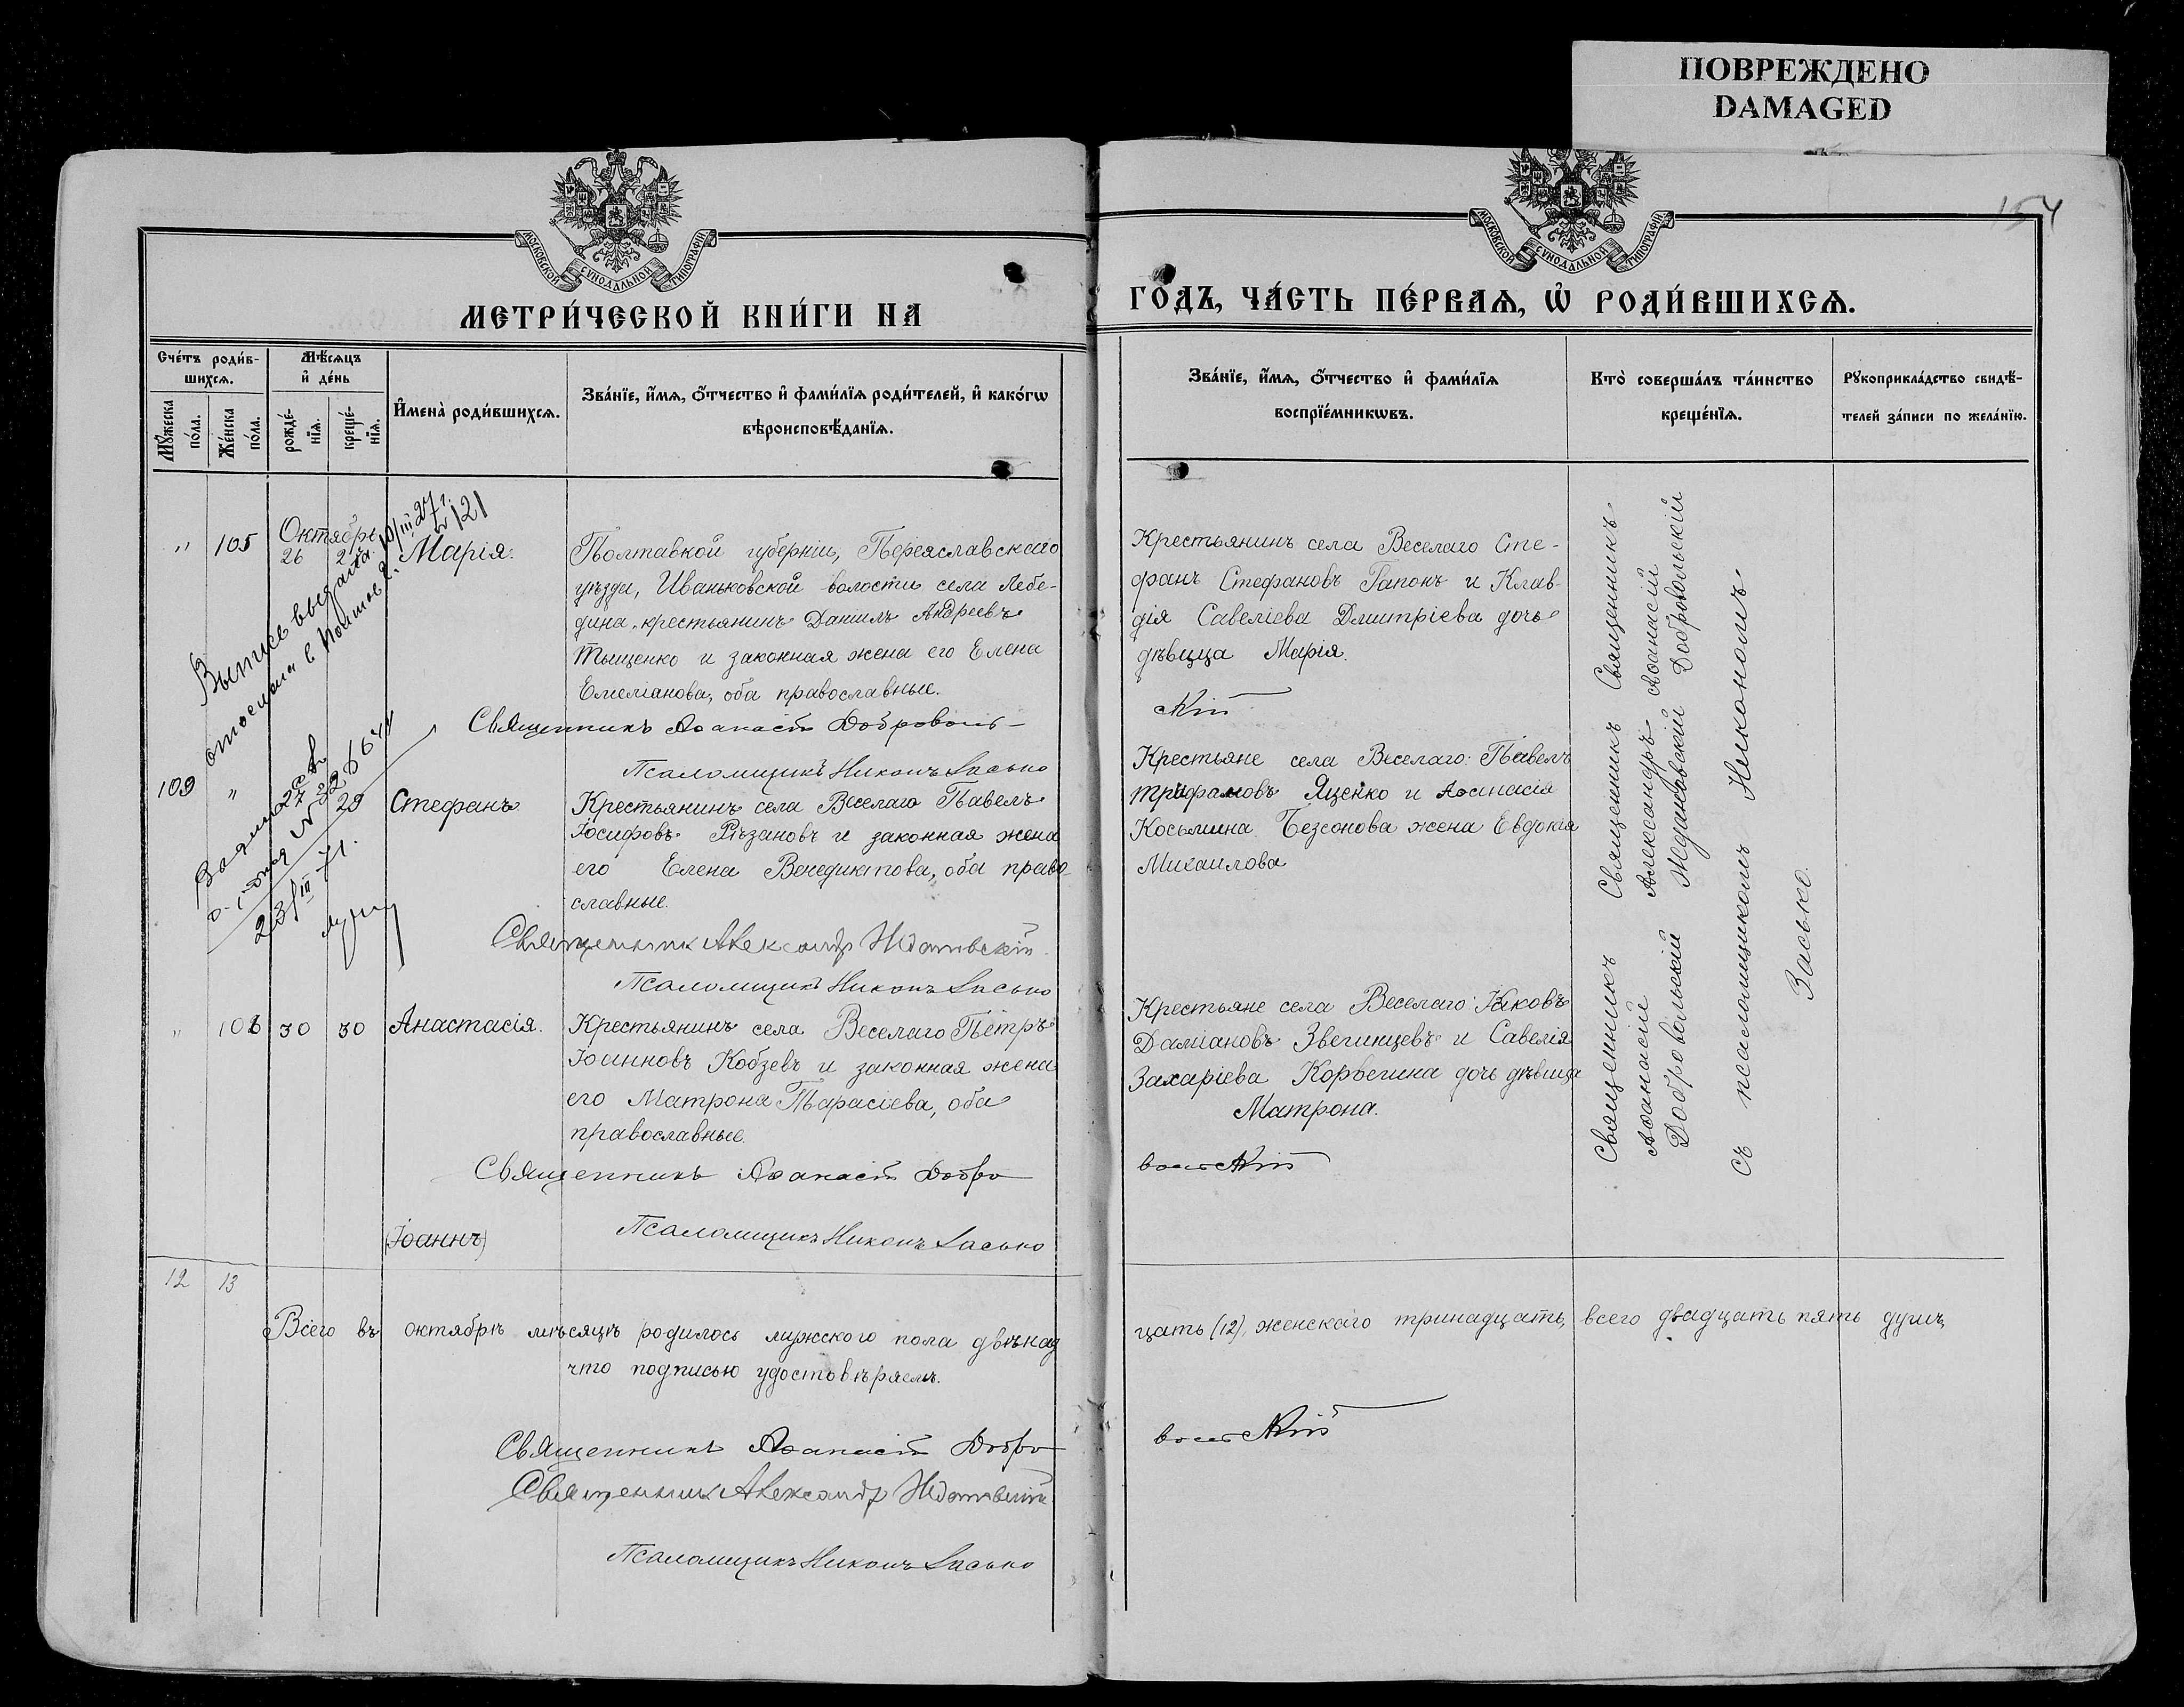 ПОВРЕЖДЕНО
DAMAGED
154
МОСКОВСКОЙ СѴНОДАЛЬНОЙ ТИПОГРАФІИ
МОСКОВСКОЙ СѴНОДАЛЬНОЙ ТИПОГРАФІИ
МЕТРИ́ЧЕСКОЙ КНИ́ГИ НА
ГО́ДЪ, ЧА́СТЬ ПЕ́РВАѦ, Ѡ҆ РОДИ́ВШИХСѦ.
Сче́тъ роди́в-
шихсѧ.
Мꙋ́жеска
по́ла.
Же́нска
по́ла.
Мѣ́сѧцъ
и҆ де́нь
рожде́-
нїѧ.
креще́-
нїѧ.
И҆мена̀ роди́вшихсѧ.
Зва́нїе, и҆́мѧ, ѻ҆́тчество и҆ фами́лїѧ роди́телей, и҆ како́гѡ
вѣроисповѣ́данїѧ.
Зва́нїе, и҆́мѧ, ѻ҆́тчество и҆ фами́лїѧ
воспрїе́мникѡвъ.
Кто̀ соверша́лъ та́инство
креще́нїѧ.
Рꙋкоприкла́дство свидѣ́-
телей за́писи по жела́нїю.
" 105
Октябрь
26
Марія.
Полтавкой губерніи, Переяславскаго
уѣзда, Иваньковской волости села Лебе-
дина, крестьянинъ Даніилъ Андреевъ
Тыщенко и законная жена его Елена
Емеліанова, оба православные.
Священникъ Аѳанасій Добровольскій
Псаломщикъ Никонъ Засько
Крестьянинъ села Веселаго Сте-
фанъ Стефановъ Гапонъ и Клав-
дія Савеліева Дмитріева дочь
дѣвица Марія.
Выпись выдана 10/III 27 г.
№ 121
109 " 27 29 Стефанъ
Крестьянинъ села Веселаго Павелъ
Іосифовъ Рѣзановъ и законная жена
его Елена Венедиктова, оба право-
славные.
Священник Александр Ждановский
Псаломщикъ Никонъ Засько
Крестьяне села Веселаго: Павелъ
Трифановъ Яценко и Аѳанасія
Косьмина Безсонова жена Евдокія
Михаилова
23/III 71.
" 106 30 30 Анастасія.
Крестьянинъ села Веселаго Петръ
Іоанновъ Кобзевъ и законная жена
его Матрона Тарасіева, оба
православные.
Священникъ Аѳанасій Добровольскій
Псаломщикъ Никонъ Засько
Крестьяне села Веселаго Іаковъ
Даміановъ Звегинцевъ и Савелія
Захаріева Корвегина дочь дѣвица
Матрона.
(Іоаннъ)
Священникъ Аѳанасій Добровольскій
Священникъ Александръ Ждановскій
Священникъ Аѳанасій Добровольскій
съ псаломщикомъ Никономъ
Засько.
12 13
Всего въ октябрѣ мѣсяцѣ родилось мужского пола двѣнад
цать (12), женскаго тринадцать, всего двадцать пять душъ,
что подписью удостовѣряемъ.
Священникъ Аѳанасій Добровольскій
Священник Александр Ждановский
Псаломщикъ Никонъ Засько